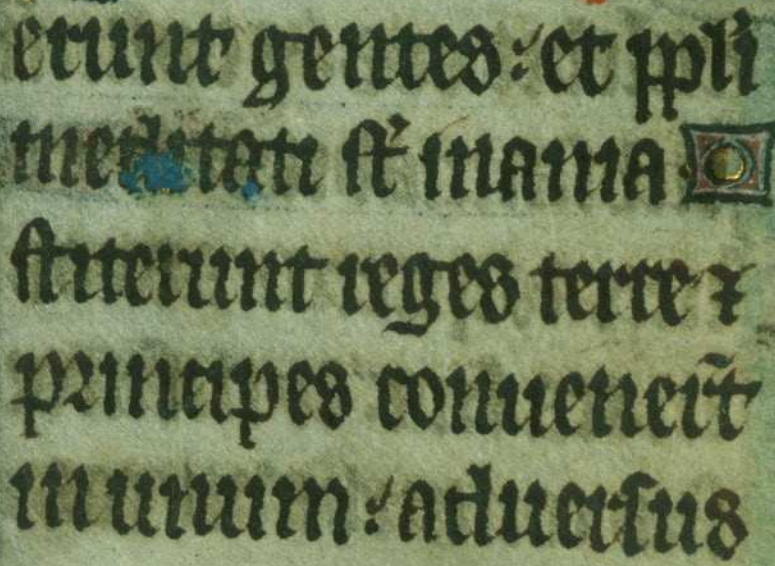 erunt gentes : et ppli
meditati st inania
stiterunt reges terre ⁊
principes conuener̄t
in unum : aduersus